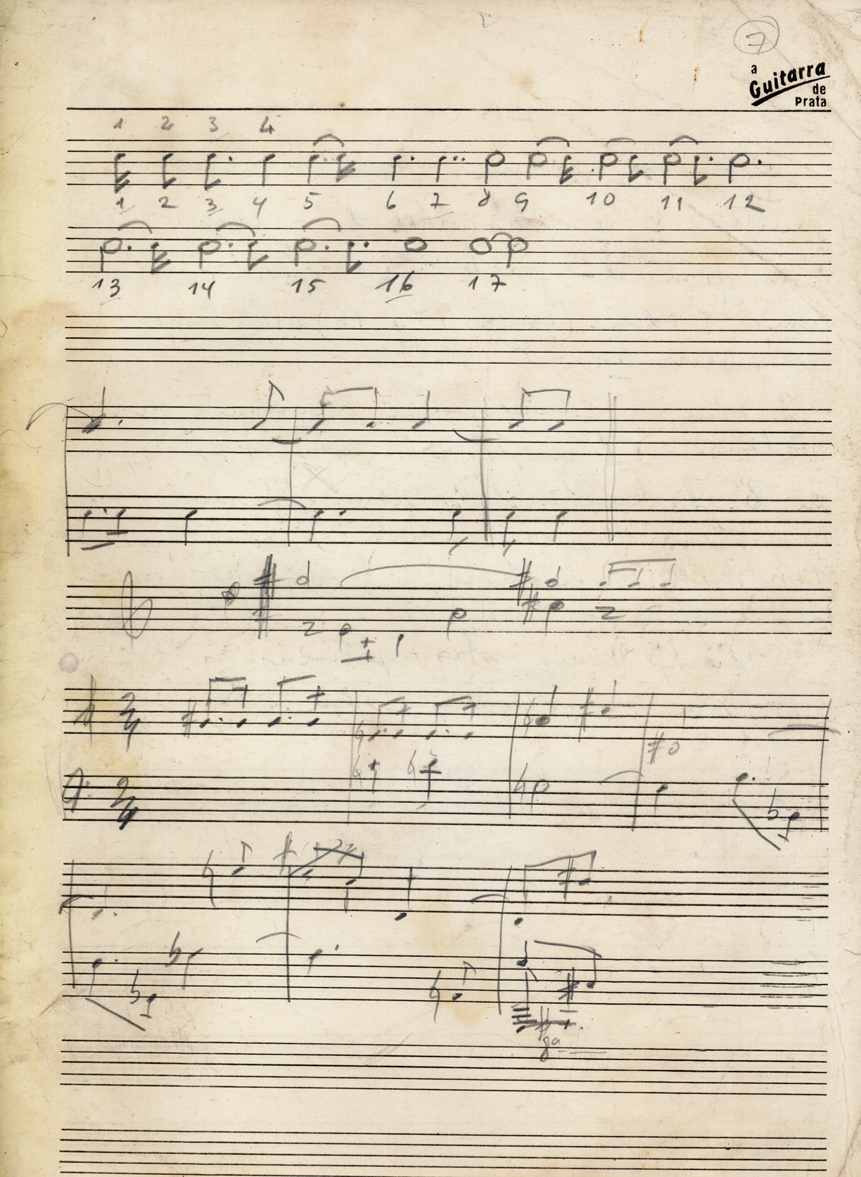 7
a
Guitarra
de
Prata
1 2 3 4
1 2 3 4 5 6 7 8 9 10 11 12
13 14 15 16 17
2
4
2
4
8a